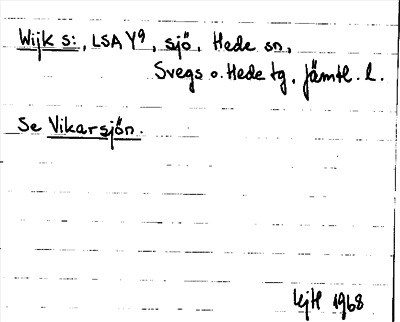 Wijk s:, LSA Y9, sjö, Hede sn,
Svegs o. Hede tg, Jämtl. l.
Se Vikarsjön.
1968